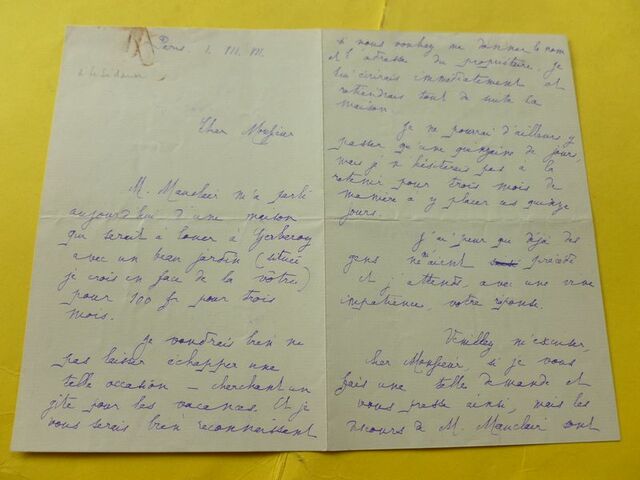 Paris. 1. VII. VII.
à Le Sidaner
Cher Monsieur
M. Mauclair m'a parlé
aujourd'hui d'une maison
qui serait à louer à Gerberoy
avec un beau jardin (située
je crois en face de la vôtre)
pour 100 fr pour trois
mois.
Je voudrais bien ne
pas laisser échapper une
telle occasion — cherchant un
gîte pour les vacances. Et je
vous serais bien reconnaissant
si vous vouliez me donner le nom
et l'adresse du propriétaire. Je
lui écrirais immédiatement et
retiendrais tout de suite la
maison.
Je ne pourrai d'ailleurs y
passer qu'une quinzaine de jours,
mais je n'hésiterais pas à la
retenir pour trois mois de
manière à y placer ces quinze
jours.
J'ai peur que déjà des
gens ne m'aient précédé
et j'attends, avec une vive
impatience, votre réponse.
Veuillez m'excuser,
cher Monsieur, si je vous
fais une telle demande et
vous presse ainsi, mais les
discours de M. Mauclair sont